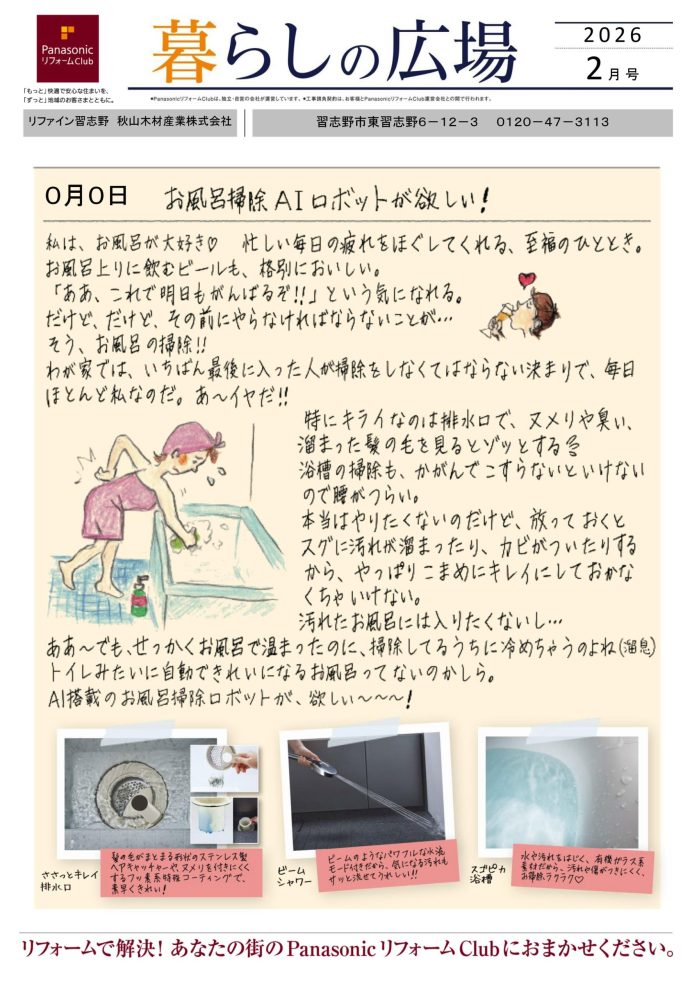 Panasonic
リフォームClub
「もっと」快適で安心な住まいを、
「ずっと」地域のお客さまとともに。
暮らしの広場
2026
2月号
●PanasonicリフォームClubは、独立・自営の会社が運営しています。●工事請負契約は、お客様とPanasonicリフォームClub運営会社との間で行われます。
リファイン習志野 秋山木材産業株式会社
習志野市東習志野6－12－3 0120－47－3113
0月0日 お風呂掃除AIロボットが欲しい！
私は、お風呂が大好き♡ 忙しい毎日の疲れをほぐしてくれる、至福のひととき。
お風呂上りに飲むビールも、格別においしい。
「ああ、これで明日もがんばるぞ!!」という気になれる。
だけど、だけど、その前にやらなければならないことが…
そう、お風呂の掃除!!
わが家では、いちばん最後に入った人が掃除をしなくてはならない決まりで、毎日
ほとんど私なのだ。あ〜イヤだ!!
特にキライなのは排水口で、ヌメリや臭い、
溜まった髪の毛を見るとゾッとする
浴槽の掃除も、かがんでこすらないといけない
ので腰がつらい。
本当はやりたくないのだけど、放っておくと
スグに汚れが溜まったり、カビがついたりする
から、やっぱりこまめにキレイにしておかな
くちゃいけない。
汚れたお風呂には入りたくないし…
ああ〜でも、せっかくお風呂で温まったのに、掃除してるうちに冷めちゃうのよね(溜息)
トイレみたいに自動できれいになるお風呂ってないのかしら。
AI搭載のお風呂掃除ロボットが、欲しい〜〜〜！
ささっとキレイ
排水口
髪の毛がまとまる形状のステンレス製
ヘアキャッチャーや、ヌメリを付きにくく
するフッ素系特殊コーティングで、
素早くきれい！
ビーム
シャワー
ビームのようなパワフルな水流
モード付きだから、気になる汚れも
サッと流せてうれしい!!
スゴピカ
浴槽
水や汚れをはじく、有機ガラス系
素材だから、汚れや傷がつきにくく、
お掃除ラクラク♡
リフォームで解決！あなたの街のPanasonicリフォームClubにおまかせください。